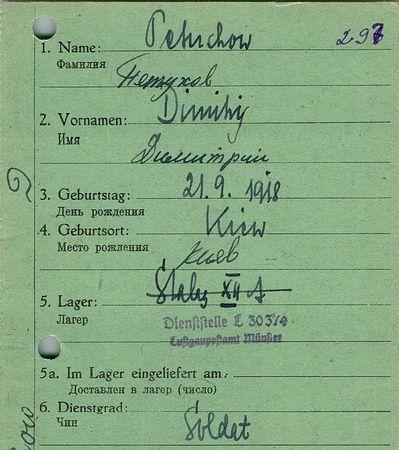 1. Name: Petuchow 297
Фамилия
Петухов
2. Vornamen: Dimitrij
Имя
Димитрий
3. Geburtstag: 21.9.1918
День рождения
4. Geburtsort: Kiew
Место рождения
Киев
5. Lager: Stalag XII A
Лагерь
Dienststelle L 30374
Luftgaupostamt Münster
5a. Im Lager eingeliefert am:
Доставлен в лагерь (число)
6. Dienstgrad: Soldat
Чин